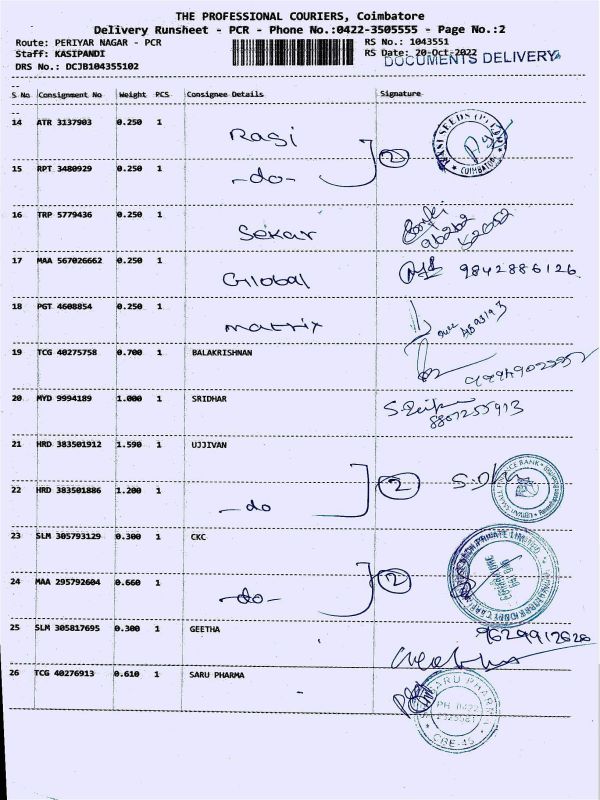 THE PROFESSIONAL COURIERS, Coimbatore
Delivery Runsheet - PCR - Phone No.:0422-3505555 - Page No.:2
Route: PERIYAR NAGAR - PCR RS No.: 1043551
Staff: KASIPANDI RS Date: 20-Oct-2022
DOCUMENTS DELIVERY
DRS No.: DCJB104355102
S No Consignment No Weight PCS Consignee Details Signature
14 ATR 3137903 0.250 1 Rasi
2
RASI SEEDS (P) LTD COIMBATORE
15 RPT 3480929 0.250 1 -do-
16 TRP 5779436 0.250 1 Sekar
17 MAA 567026662 0.250 1 Global 9842886126
18 PGT 4608854 0.250 1 matrix
19 TCG 40275758 0.700 1 BALAKRISHNAN
20 MYD 9994189 1.000 1 SRIDHAR
21 HRD 383501912 1.590 1 UJJIVAN
2
22 HRD 383501886 1.200 1 -do
23 SLM 305793129 0.300 1 CKC
2
24 MAA 295792604 0.660 1 -do-
25 SLM 305817695 0.300 1 GEETHA 9629912626
26 TCG 40276913 0.610 1 SARU PHARMA
SARU PHARMA
CBE-45